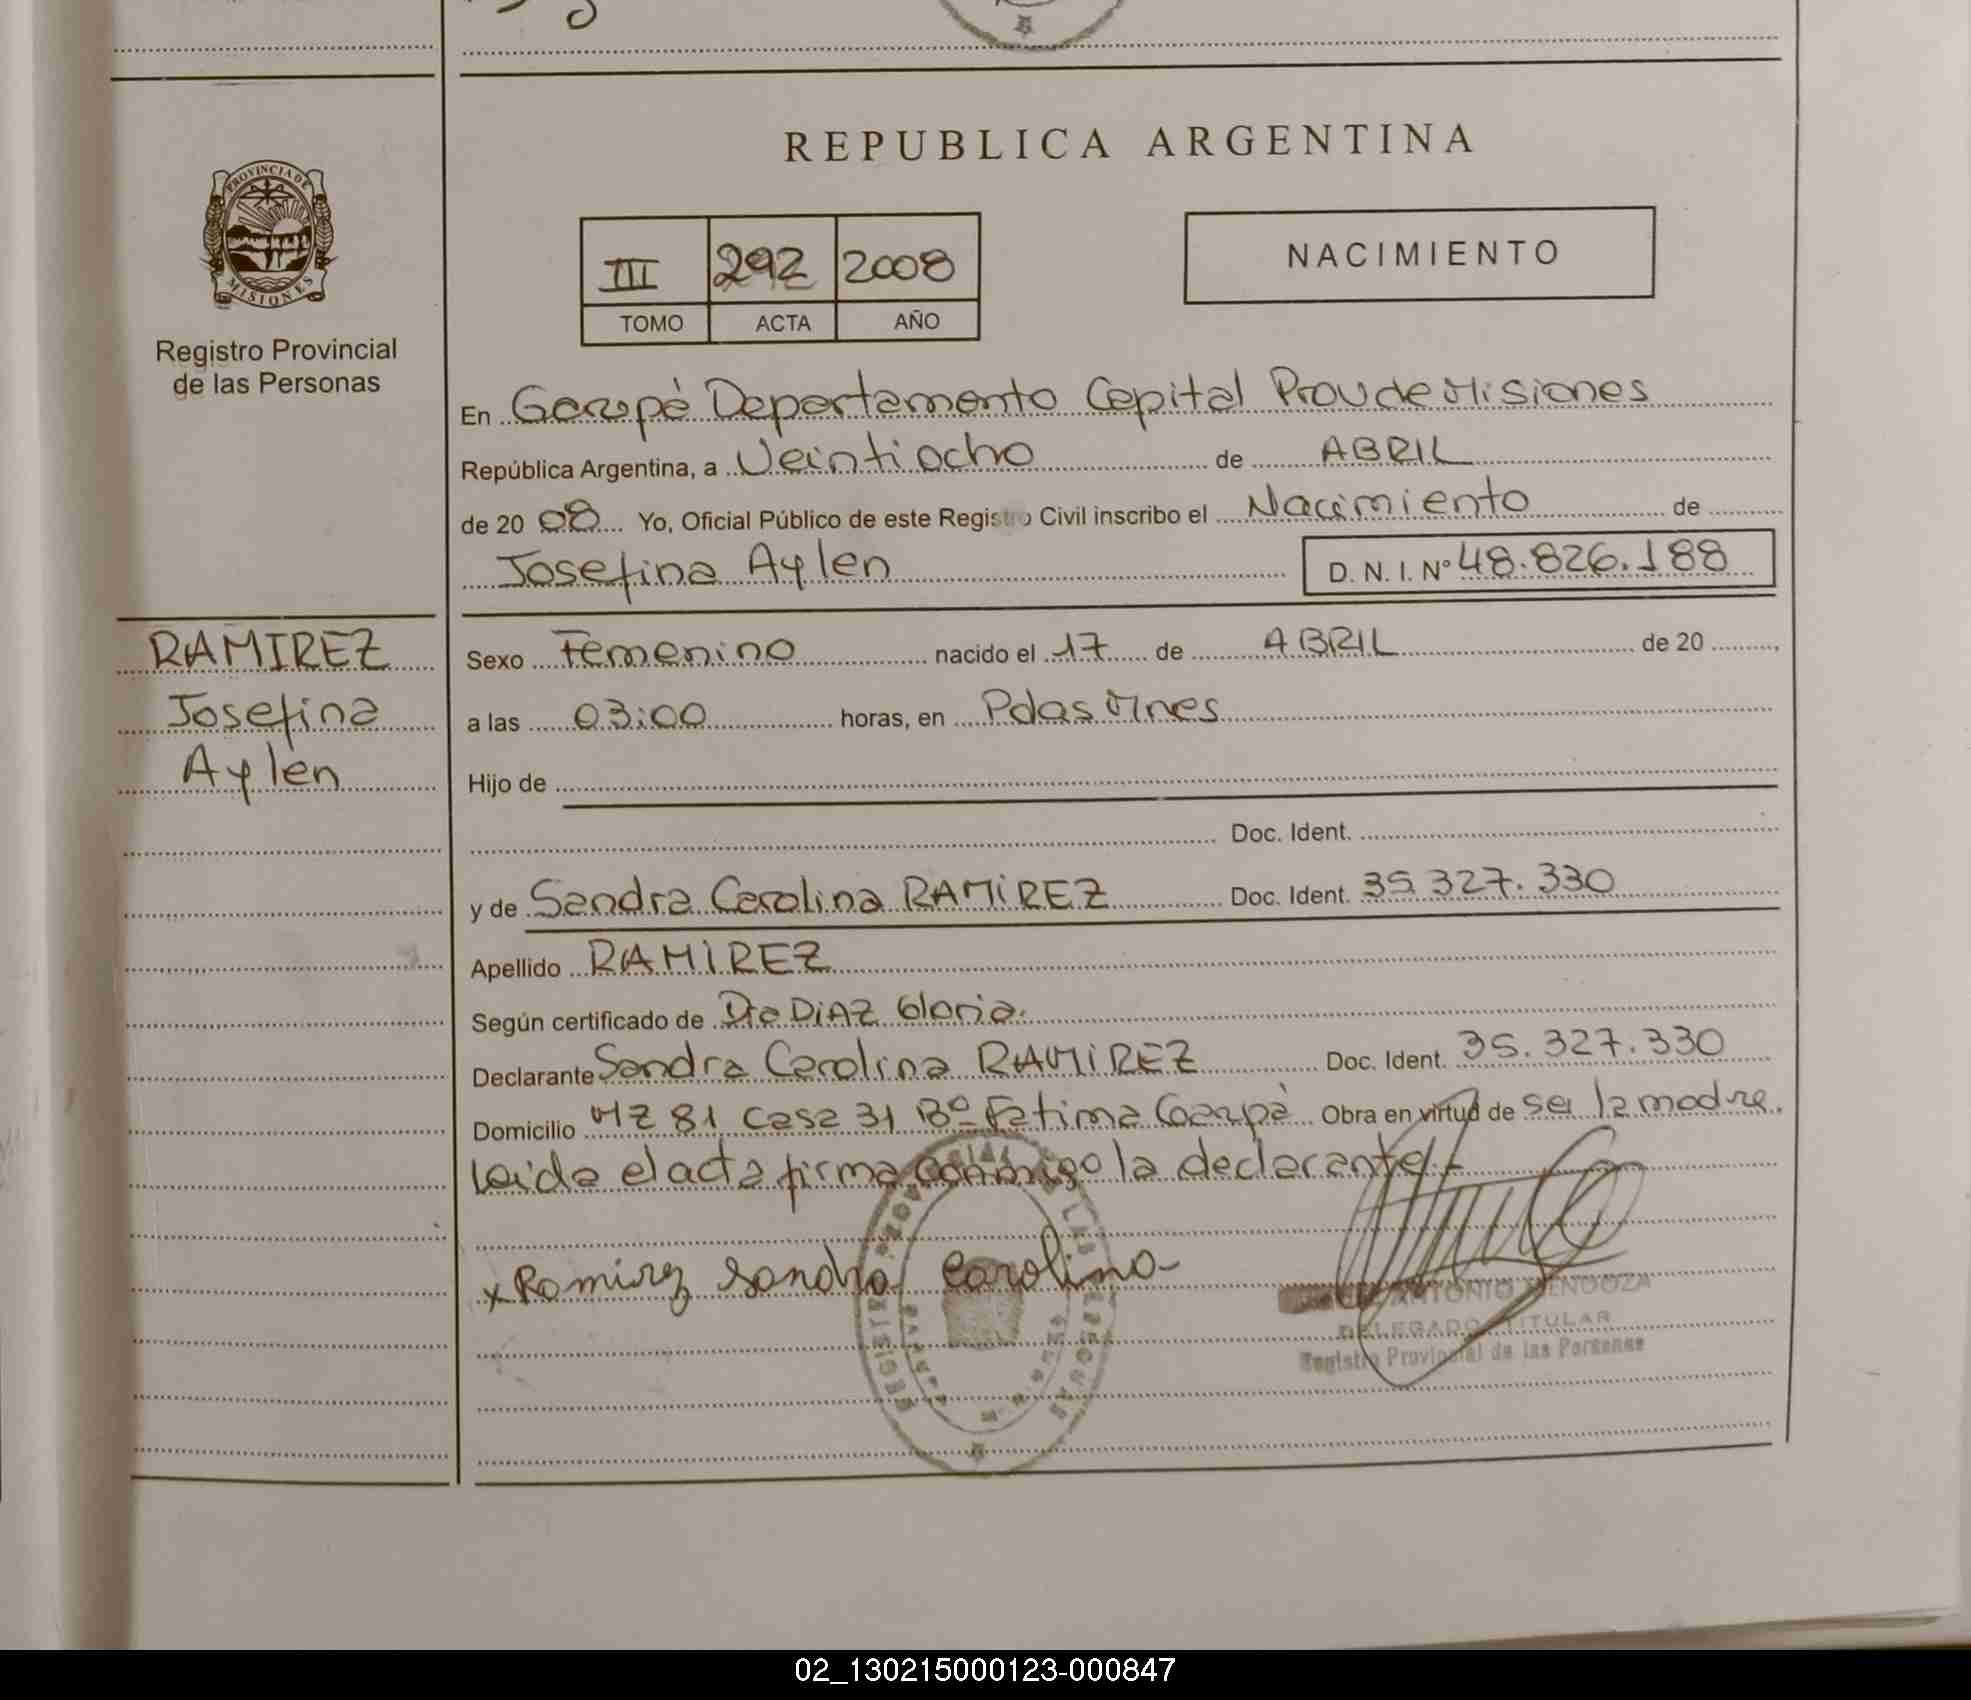 REPUBLICA ARGENTINA
PROVINCIA DE
MISIONES
Registro Provincial
de las Personas
III 292 2008
TOMO ACTA AÑO
NACIMIENTO
En Garupá Departamento Capital Prov de Misiones
República Argentina, a Veintiocho de ABRIL
de 20 08 Yo, Oficial Público de este Registro Civil inscribo el Nacimiento de
Josefina Aylen D. N. I. Nº 48.826.188
RAMIREZ
Josefina
Aylen
Sexo Femenino nacido el 17 de ABRIL de 20
a las 03:00 horas, en Pdas Mnes
Hijo de
Doc. Ident.
y de Sandra Carolina RAMIREZ Doc. Ident. 35.327.330
Apellido RAMIREZ
Según certificado de Dra DIAZ Gloria.
Declarante Sandra Carolina RAMIREZ Doc. Ident. 35.327.330
Domicilio MZ 81 Casa 31 Bº Fatima Garupá Obra en virtud de ser la madre.
Leida el acta firma conmigo la declarante.-
x Ramirez Sandra Carolina
ANTONIO MENDOZA
DELEGADO TITULAR
Registro Provincial de las Personas
02_130215000123-000847